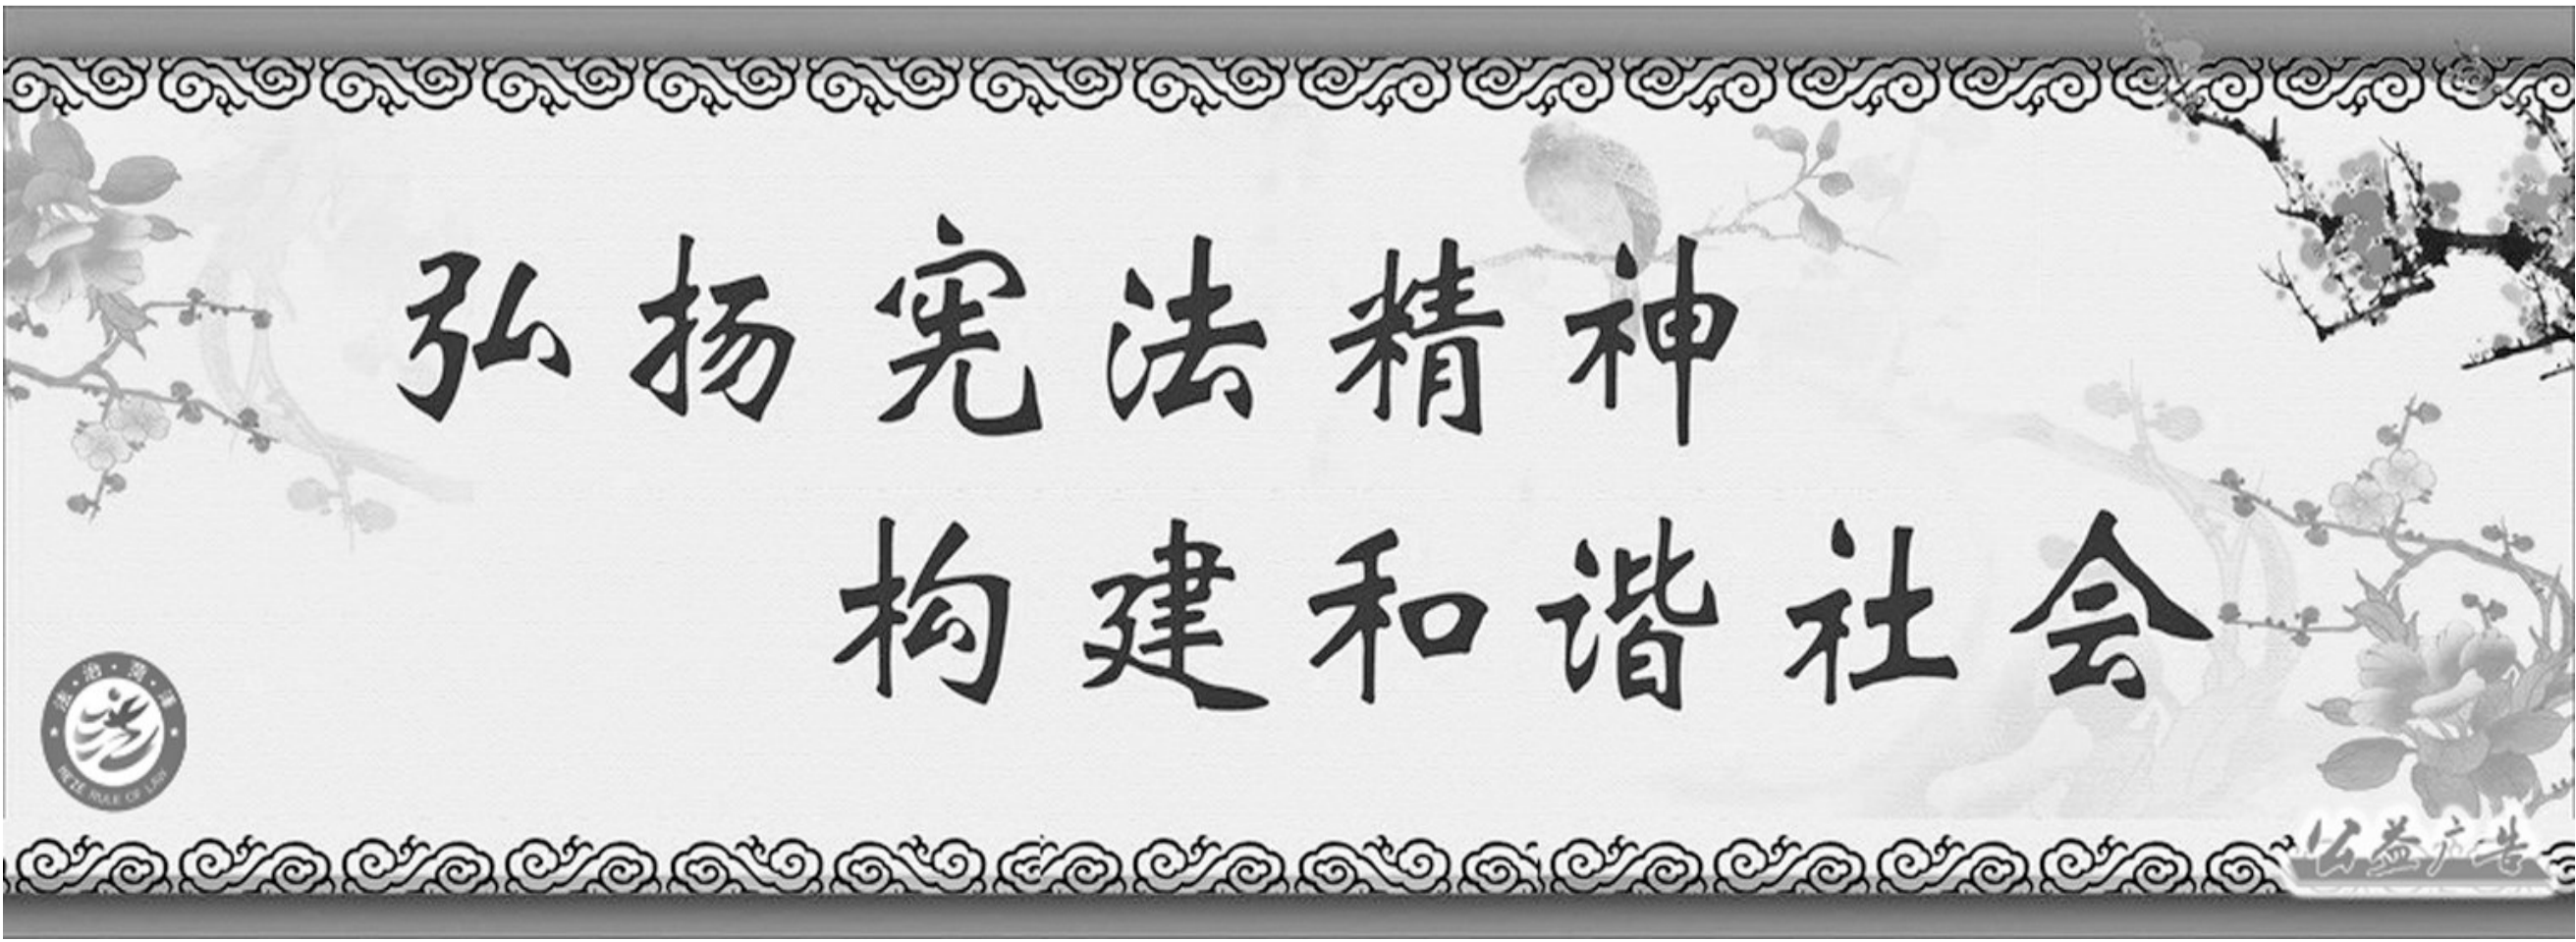 弘扬宪法精神
构建和谐社会
法·治·菏·泽
HEZE RULE OF LAW
公益广告